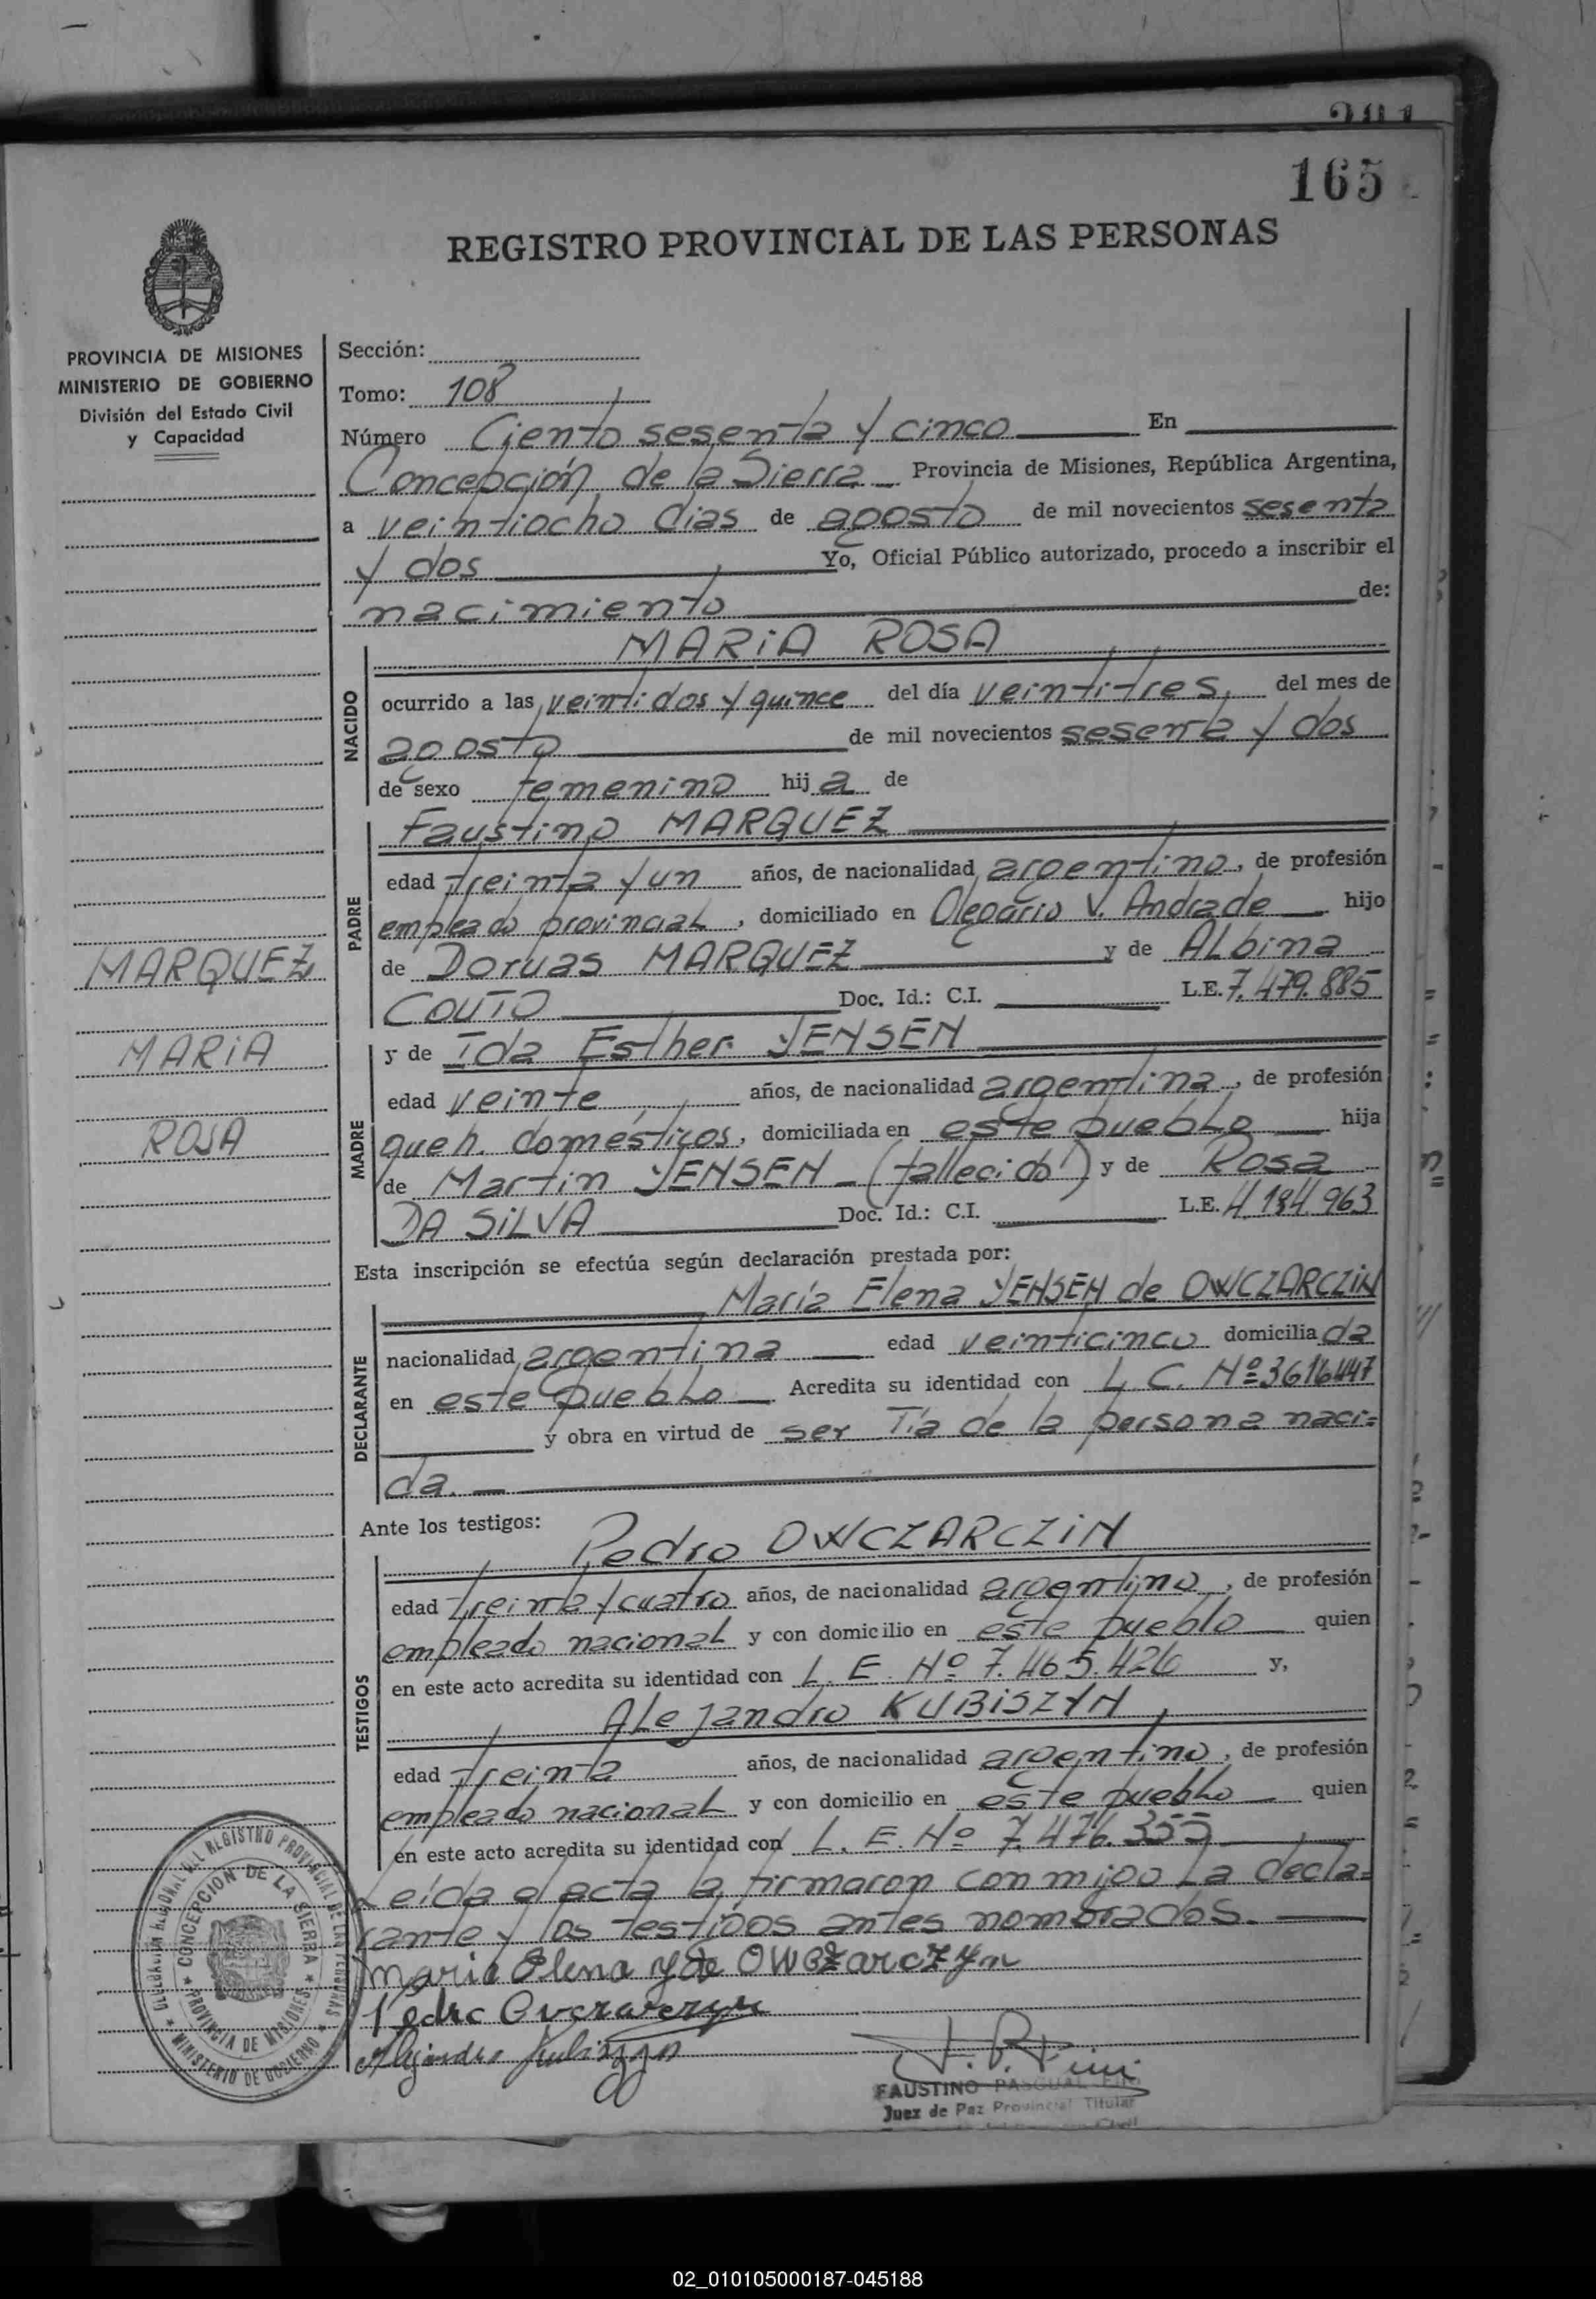 165
REGISTRO PROVINCIAL DE LAS PERSONAS
PROVINCIA DE MISIONES
MINISTERIO DE GOBIERNO
División del Estado Civil
y Capacidad
Sección:
Tomo: 108
Número Ciento sesenta y cinco En
Concepción de la Sierra Provincia de Misiones, República Argentina,
a veintiocho días de agosto de mil novecientos sesenta
y dos Yo, Oficial Público autorizado, procedo a inscribir el
nacimiento de:
NACIDO
MARIA ROSA
ocurrido a las veintidos y quince del día veintitres, del mes de
agosto de mil novecientos sesenta y dos
de sexo femenino hija de
PADRE
Faustino MARQUEZ
edad treinta y un años, de nacionalidad argentino, de profesión
empleado provincial, domiciliado en Olegario V. Andrade hijo
de Doruas MARQUEZ y de ALbina
COUTO Doc. Id.: C.I. L.E. 7.479.885
MARQUEZ
MARIA
ROSA
MADRE
y de Ida Esther YENSEN
edad veinte años, de nacionalidad argentina, de profesión
queh. domésticos, domiciliada en este pueblo hija
de Martin YENSEN (fallecido) y de Rosa
DA SILVA Doc. Id.: C.I. L.E. 4.184.963
Esta inscripción se efectúa según declaración prestada por:
DECLARANTE
María Elena YENSEN de OWCZARCZIN
nacionalidad argentina edad veinticinco domiciliada
en este pueblo Acredita su identidad con L. C. Nº 3616447
y obra en virtud de ser Tía de la persona naci=
da.
Ante los testigos:
TESTIGOS
Pedro OWCZARCZIN
edad treinta y cuatro años, de nacionalidad argentino, de profesión
empleado nacional y con domicilio en este pueblo quien
en este acto acredita su identidad con L. E. Nº 7.465.426 y,
ALejandro KUBISZYN
edad treinta años, de nacionalidad argentino, de profesión
empleado nacional y con domicilio en este pueblo quien
en este acto acredita su identidad con L. E. Nº 7.476.355
Leída el acta la firmaron conmigo La decla=
rante y los testigos antes nombrados.
Maria Elena Y de Owczarczyn
Pedro Owczarczyn
Alejandro Kubiszyn
FAUSTINO PASCUAL
Juez de Paz Provincial Titular
DELEGACION REGIONAL DEL REGISTRO PROVINCIAL DE LAS PERSONAS
MINISTERIO DE GOBIERNO
CONCEPCION DE LA SIERRA
PROVINCIA DE MISIONES
02_010105000187-045188